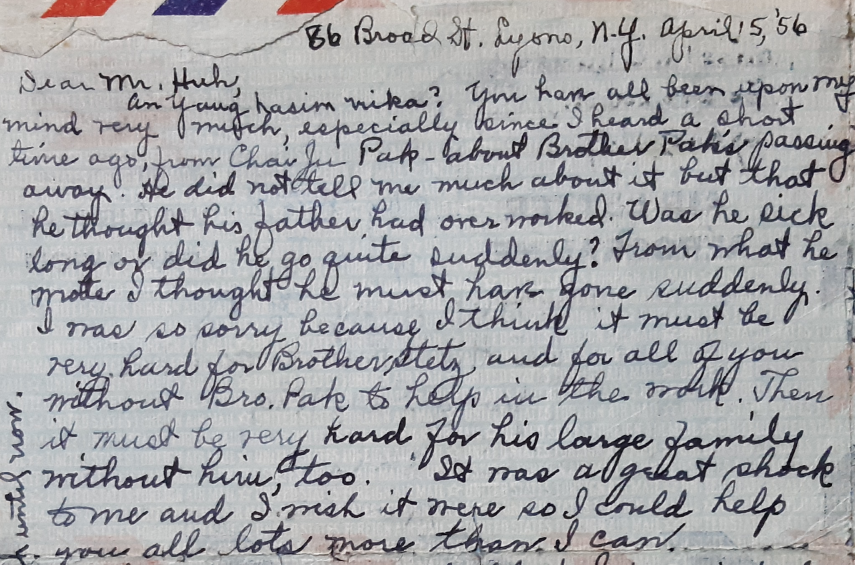 86 Broad St. Lyons, N.Y. April 5, '56
Dear Mr. Huh,
An Yaug hasim nika? You have all been upon my
mind very much, especially since I heard a short
time ago, from Chai Ju Pak - about Brother Pak's passing
away. He did not tell me much about it but that
he thought his father had overworked. Was he sick
long or did he go quite suddenly? From what he
wrote I thought he must have gone suddenly.
I was so sorry because I think it must be
very hard for Brother Stetz, and for all of you
without Bro. Pak to help in the work. Then
it must be very hard for his large family
without him, too. It was a great shock
to me and I wish it were so I could help
you all lots more than I can.
now.